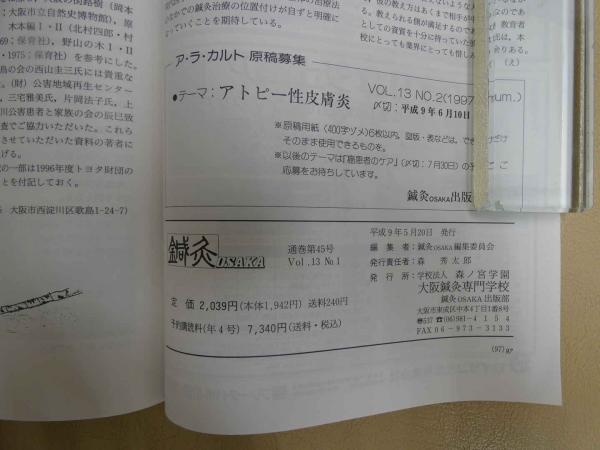 大阪の街路樹（岡本
；大阪市立自然史博物館），原
木本編Ⅰ・Ⅱ（北村四郎・村
；保育社），野山の木Ⅰ・Ⅱ
1975；保育社）を参考にした。
鳥の会の西山圭三氏には貴重な
。（財）公害地域再生センター
，三宅雅美氏，片岡法子氏，上
川公害患者と家族の会の辰巳致
査でご協力いただいた。これら
させていただいた資料の著者に
げる。
の一部は1996年度トヨタ財団の
ことを付記しておく。
大阪市西淀川区歌島1-24-7）
なかでの鍼灸治療の位置付けが自ずと明確に
なっていくことを期待している。
る。教えられる側が満足するのであ
としての資質を十分に持っていた
校にとっても業界にとっても惜しみ
余りある。
（え）
ア・ラ・カルト 原稿募集
●テーマ：アトピー性皮膚炎
VOL.13 NO.2(1997
〆切：平成9年6月10日
※原稿用紙（400字ヅメ）6枚以内。図版・表などは、でき
そのまま使用できるものを。
※以後のテーマは「癌患者のケア」（〆切：7月30日）の
応募をお待ちしています。
鍼灸OSAKA出版
鍼灸OSAKA
通巻第45号
Vol.13 No.1
定 価 2,039円（本体1,942円）送料240円
予約購読料（年4号） 7,340円（送料・税込）
平成9年5月20日 発行
編 集 者：鍼灸OSAKA編集委員会
発行責任者：森 秀太郎
発 行 所：学校法人 森ノ宮学園
大阪鍼灸専門学校
鍼灸OSAKA出版部
大阪市東成区中本4丁目1番8号
〒537 ☎(06)981-4154
FAX 06-973-3133
(97)gr